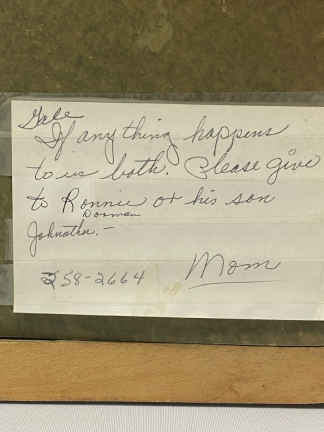 Gale
If anything happens
to us both. Please give
to Ronnie or his son
Dorman
Johnathn. -
258-2664
Mom